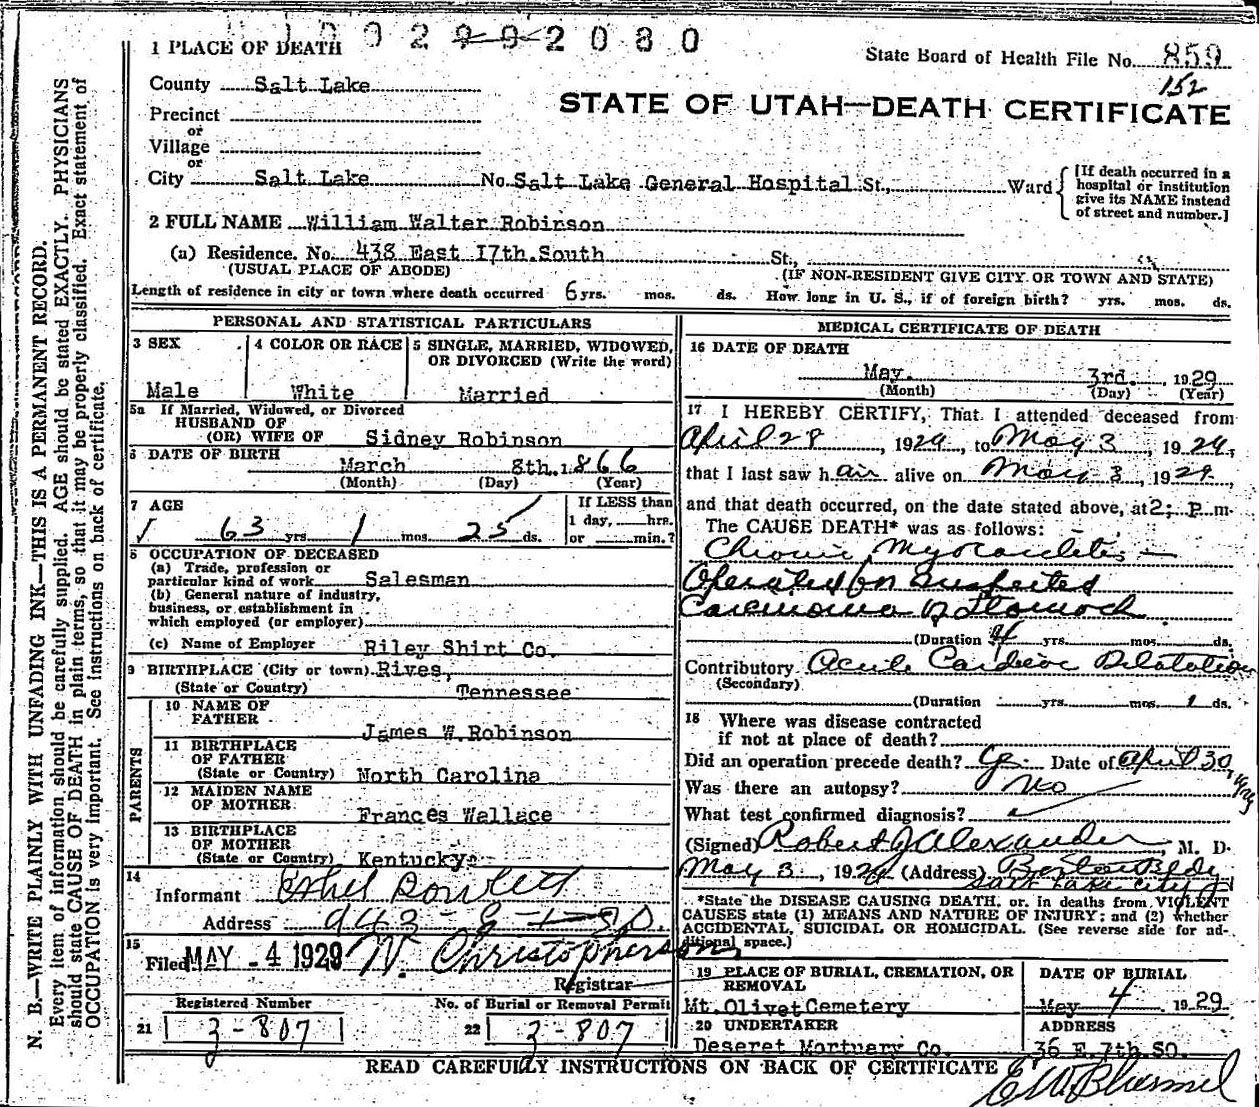 0 0 2 9 9 2 0 8 0
1 PLACE OF DEATH
State Board of Health File No. 859
152
County Salt Lake
STATE OF UTAH—DEATH CERTIFICATE
Precinct
or
Village
or
City Salt Lake No. Salt Lake General Hospital St., Ward
[If death occurred in a hospital or institution give its NAME instead of street and number.]
2 FULL NAME William Walter Robinson
(a) Residence. No. 438 East 17th. South St.,
(USUAL PLACE OF ABODE) (IF NON-RESIDENT GIVE CITY OR TOWN AND STATE)
Length of residence in city or town where death occurred 6 yrs. mos. ds. How long in U. S., if of foreign birth? yrs. mos. ds.
N. B.—WRITE PLAINLY WITH UNFADING INK—THIS IS A PERMANENT RECORD.
Every item of information should be carefully supplied. AGE should be stated EXACTLY. PHYSICIANS
should state CAUSE OF DEATH in plain terms, so that it may be properly classified. Exact statement of
OCCUPATION is very important. See instructions on back of certificate.
PERSONAL AND STATISTICAL PARTICULARS
3 SEX
Male
4 COLOR OR RACE
White
5 SINGLE, MARRIED, WIDOWED,
OR DIVORCED (Write the word)
Married
5a If Married, Widowed, or Divorced
HUSBAND OF
(OR) WIFE OF Sidney Robinson
6 DATE OF BIRTH
March 8th. 1866
(Month) (Day) (Year)
7 AGE
63 yrs. 1 mos. 25 ds.
If LESS than
1 day, hrs.
or min.?
8 OCCUPATION OF DECEASED
(a) Trade, profession or
particular kind of work Salesman
(b) General nature of industry,
business, or establishment in
which employed (or employer)
(c) Name of Employer Riley Shirt Co.
9 BIRTHPLACE (City or town) Rives,
(State or Country) Tennessee
PARENTS
10 NAME OF
FATHER James W. Robinson
11 BIRTHPLACE
OF FATHER
(State or Country) North Carolina
12 MAIDEN NAME
OF MOTHER Frances Wallace
13 BIRTHPLACE
OF MOTHER
(State or Country) Kentucky
14
Informant Ethel Rowlett
Address 943 - E
15
Filed MAY - 4 1929 W. Christopherson
Registrar
Registered Number
21 3-807
No. of Burial or Removal Permit
22 3-807
MEDICAL CERTIFICATE OF DEATH
16 DATE OF DEATH
May. 3rd. 1929
(Month) (Day) (Year)
17 I HEREBY CERTIFY, That I attended deceased from
April 28, 1929, to May 3, 1929,
that I last saw h alive on May 3, 1929,
and that death occurred, on the date stated above, at 2; P. m.
The CAUSE DEATH* was as follows:
Chronic Myocarditis —
Operated for suspected
Carcinoma of Stomach
(Duration 4 yrs. mos. ds.
Contributory Acute Cardiac Dilatation
(Secondary)
(Duration yrs. mos. 1 ds.
18 Where was disease contracted
if not at place of death?
Did an operation precede death? Date of April 30, 1929
Was there an autopsy? No
What test confirmed diagnosis?
(Signed) Robert J Alexander M. D.
May 3, 1929 (Address) Boston Bldg
Salt Lake City
*State the DISEASE CAUSING DEATH, or, in deaths from VIOLENT
CAUSES state (1) MEANS AND NATURE OF INJURY; and (2) whether
ACCIDENTAL, SUICIDAL OR HOMICIDAL. (See reverse side for ad-
ditional space.)
19 PLACE OF BURIAL, CREMATION, OR
REMOVAL
Mt. Olivet Cemetery
DATE OF BURIAL
May 4 1929
20 UNDERTAKER
Deseret Mortuary Co.
ADDRESS
36 E. 7th SO.
READ CAREFULLY INSTRUCTIONS ON BACK OF CERTIFICATE